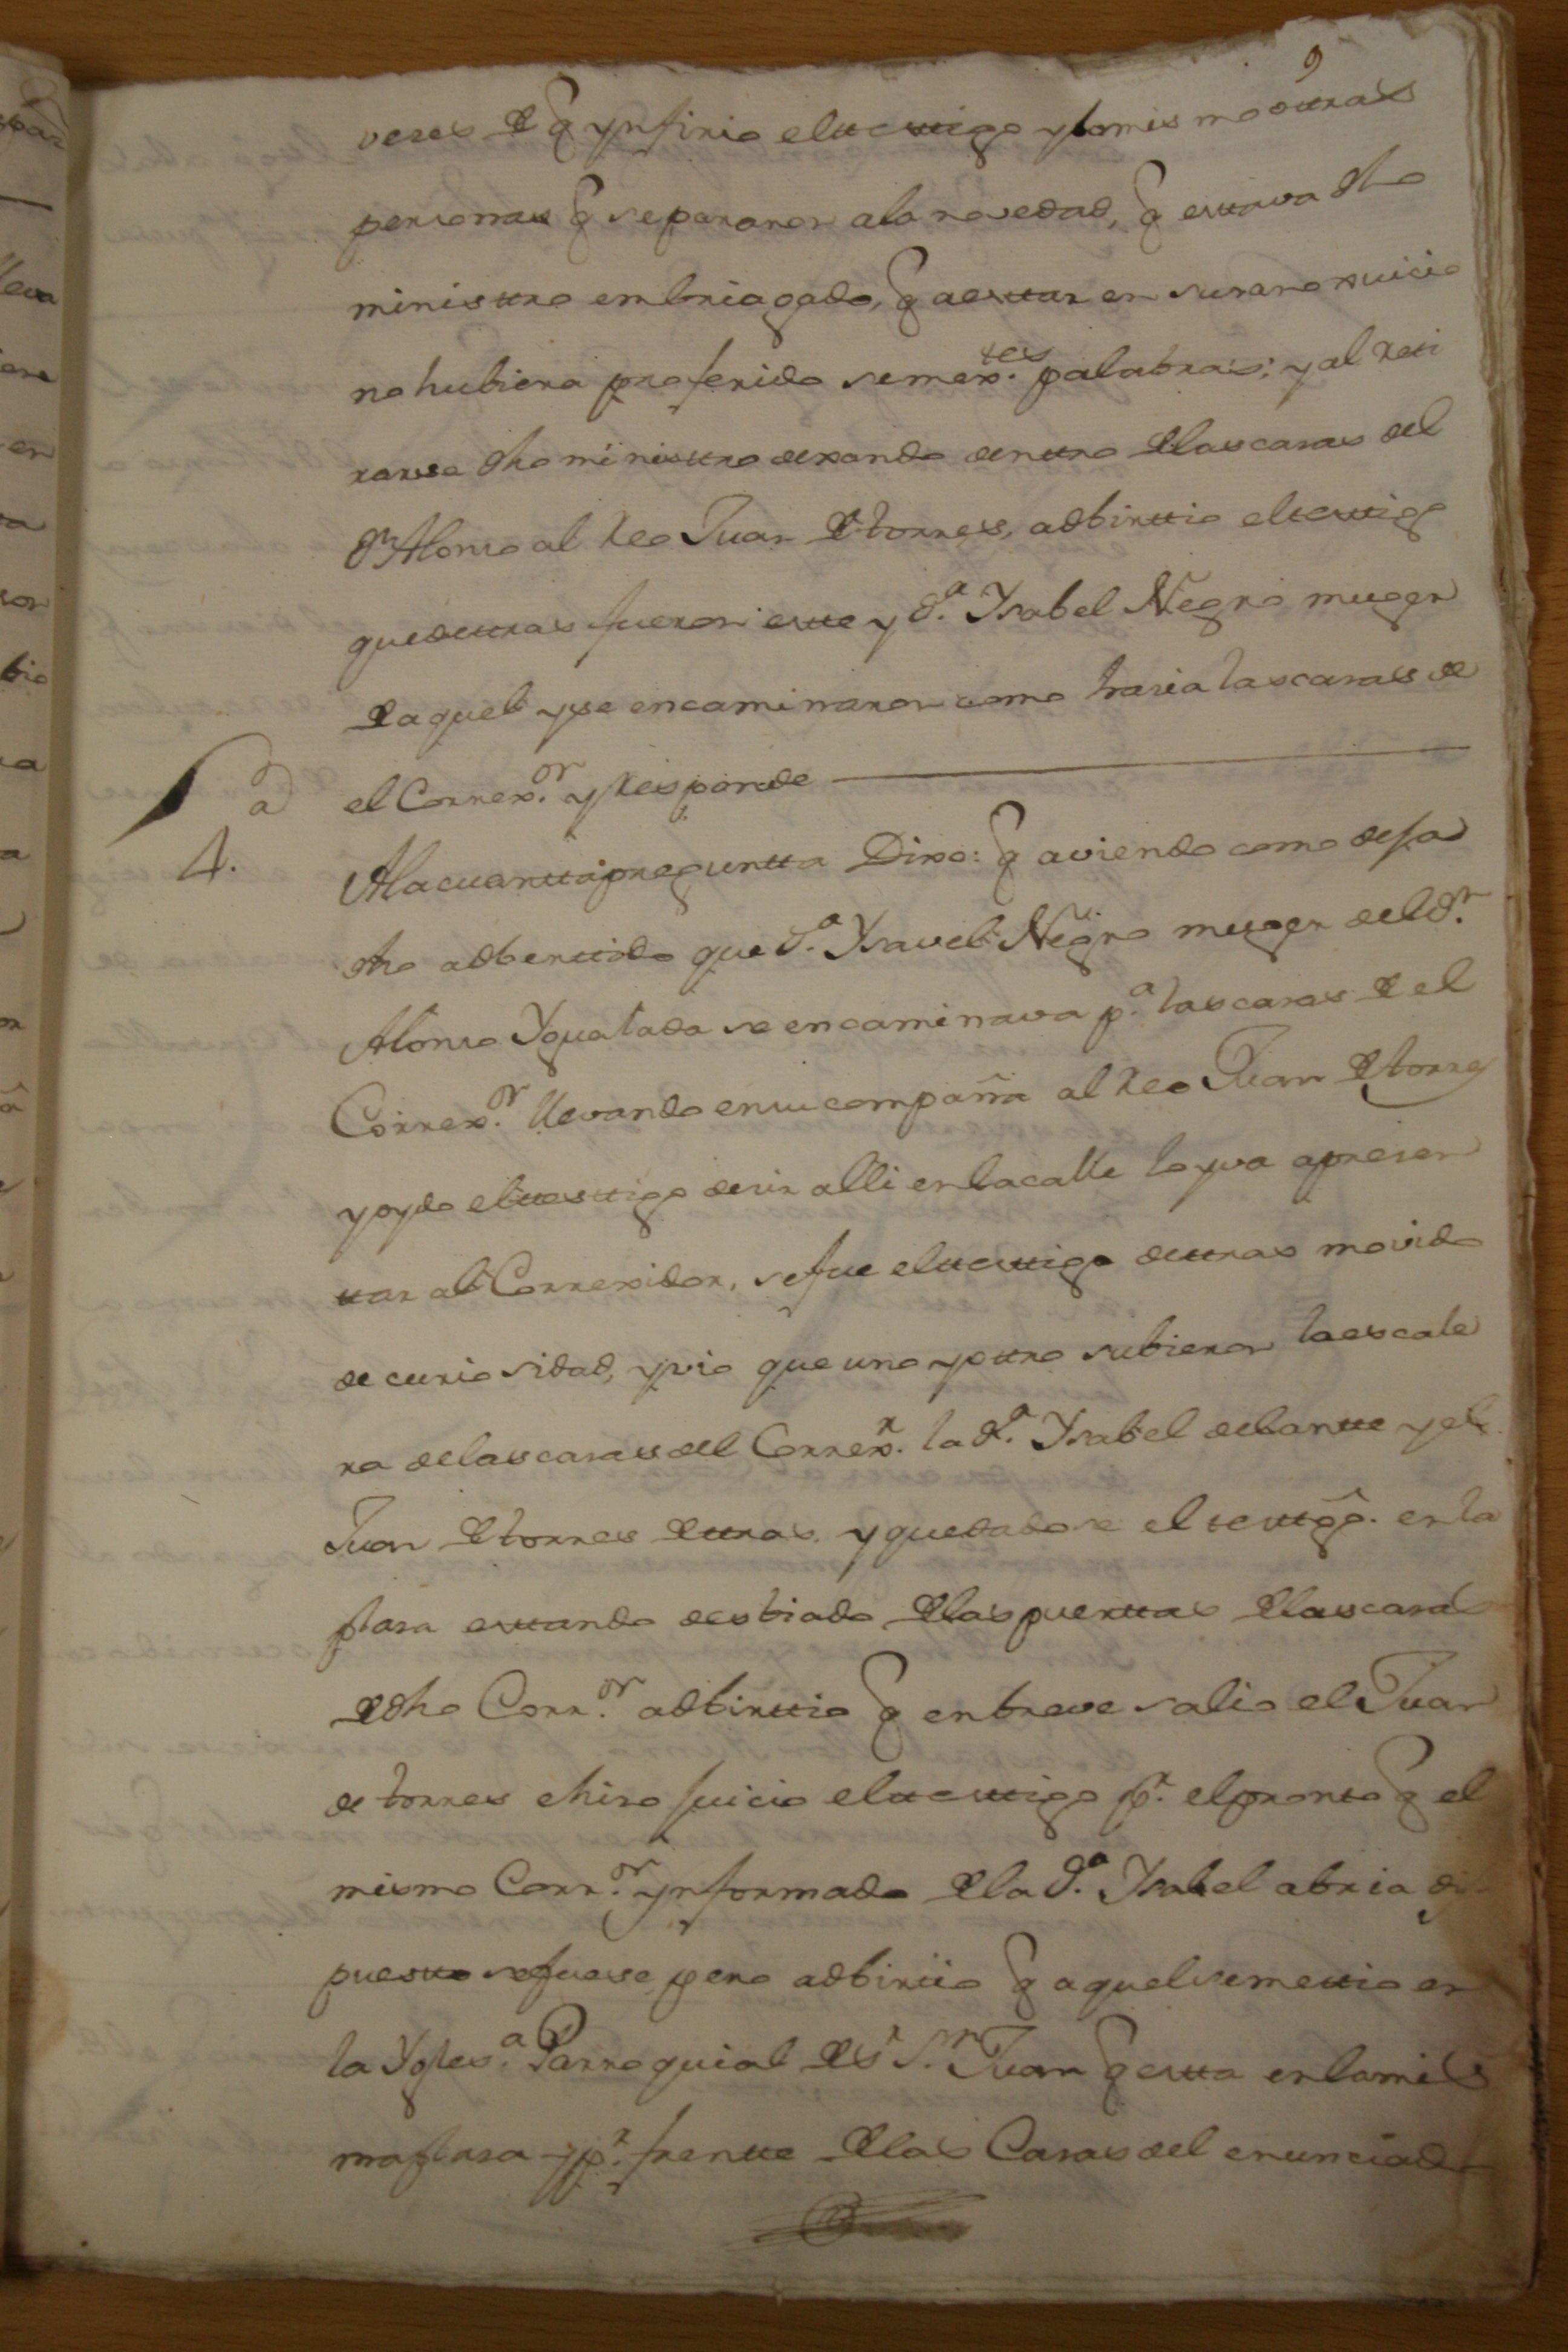 9
veses de q ynfirio el testtigo y lo mismo ottras
personas q se pararon a la novedad, q esttava dho
ministtro embriagado, q a esttar en su sano xuicio
no hubiera proferido semex.tes palabras; y al Reti
rarse dho ministtro dexando denttro de las casas del
Dn Alonso al Reo Juan de torres, adbirttio el testtigo
que dettras fueron estte y D.a Ysabel Negro muger
de aquel y se encaminaron como hasia las casas de
el Correx.or y Responde
4.a
A la cuartta preguntta Dixo: q aviendo como dexa
dho adberttido que D.a Ysavel Negro muger del D.n
Alonso Ygualada se encaminava p.a las casas de el
Correx.or llevando en su compañia al Reo Juan de torres
y oydo el testtigo desir alli en la calle lo yva a presen
tar al Correxidor, se fue el testtigo dettras movido
de curiosidad, y vio que uno y ottro subieron la escale
ra de las casas del Correx.r la D.a Ysabel delantte y el
Juan de torres dettras, y quedadose el testtigo en la
plasa esttando desbiado de las puerttas de las casas
de dho Corr.or adbirttio q en breve salio el Juan
de torres e hiso juicio el testtigo p.r el pronto q el
mismo Corr.or ynformado de la D.a Ysabel abria dis
puestto se fuese, pero adbirtio q aquel se mettio en
la Ygles.a Parroquial de S.r S.n Juan q estta en la mis
ma plasa y p.r frentte de las Casas del enunciado